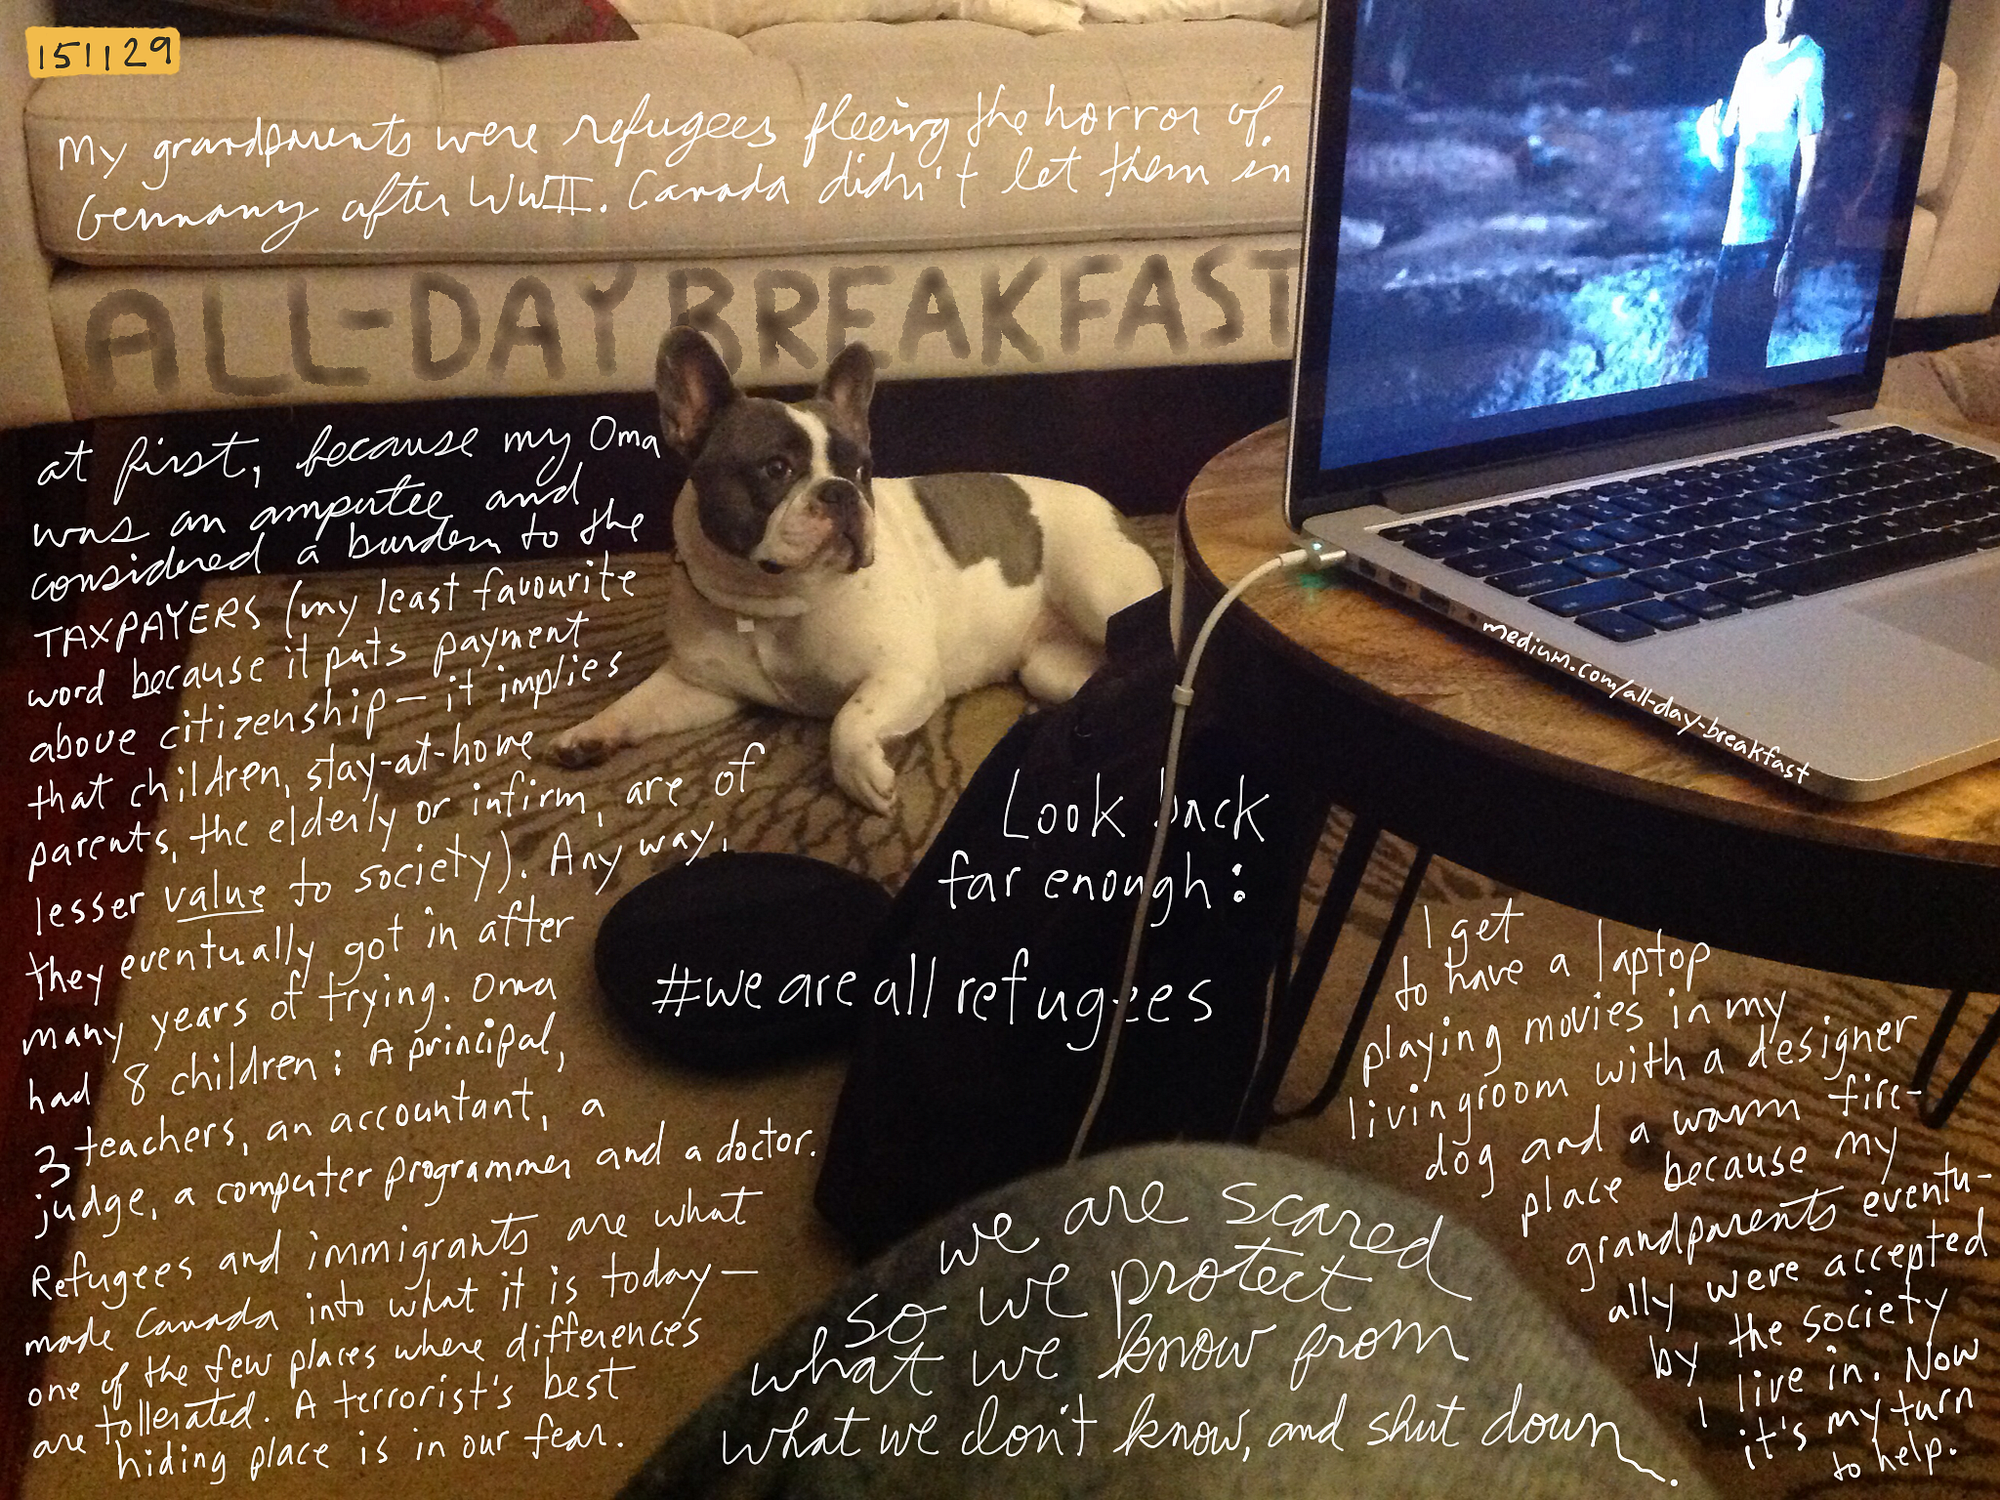 151129
My grandparents were refugees fleeing the horror of
Germany after WWII. Canada didn't let them in
ALL-DAY BREAKFAST
at first, because my Oma
was an amputee and
considered a burden to the
TAXPAYERS (my least favourite
word because it puts payment
above citizenship — it implies
that children, stay-at-home
parents, the elderly or infirm, are of
lesser value to society). Any way,
they eventually got in after
many years of trying. Oma
had 8 children: A principal,
3 teachers, an accountant, a
judge, a computer programmer and a doctor.
Refugees and immigrants are what
made Canada into what it is today —
one of the few places where differences
are tollerated. A terrorist's best
hiding place is in our fear.
Look back
far enough:
#we are all refugees
we are scared
so we protect
what we know from
what we don't know, and shut down.
medium.com/all-day-breakfast
I get
to have a laptop
playing movies in my
livingroom with a designer
dog and a warm fire-
place because my
grandparents eventu-
ally were accepted
by the society
I live in. Now
it's my turn
to help.